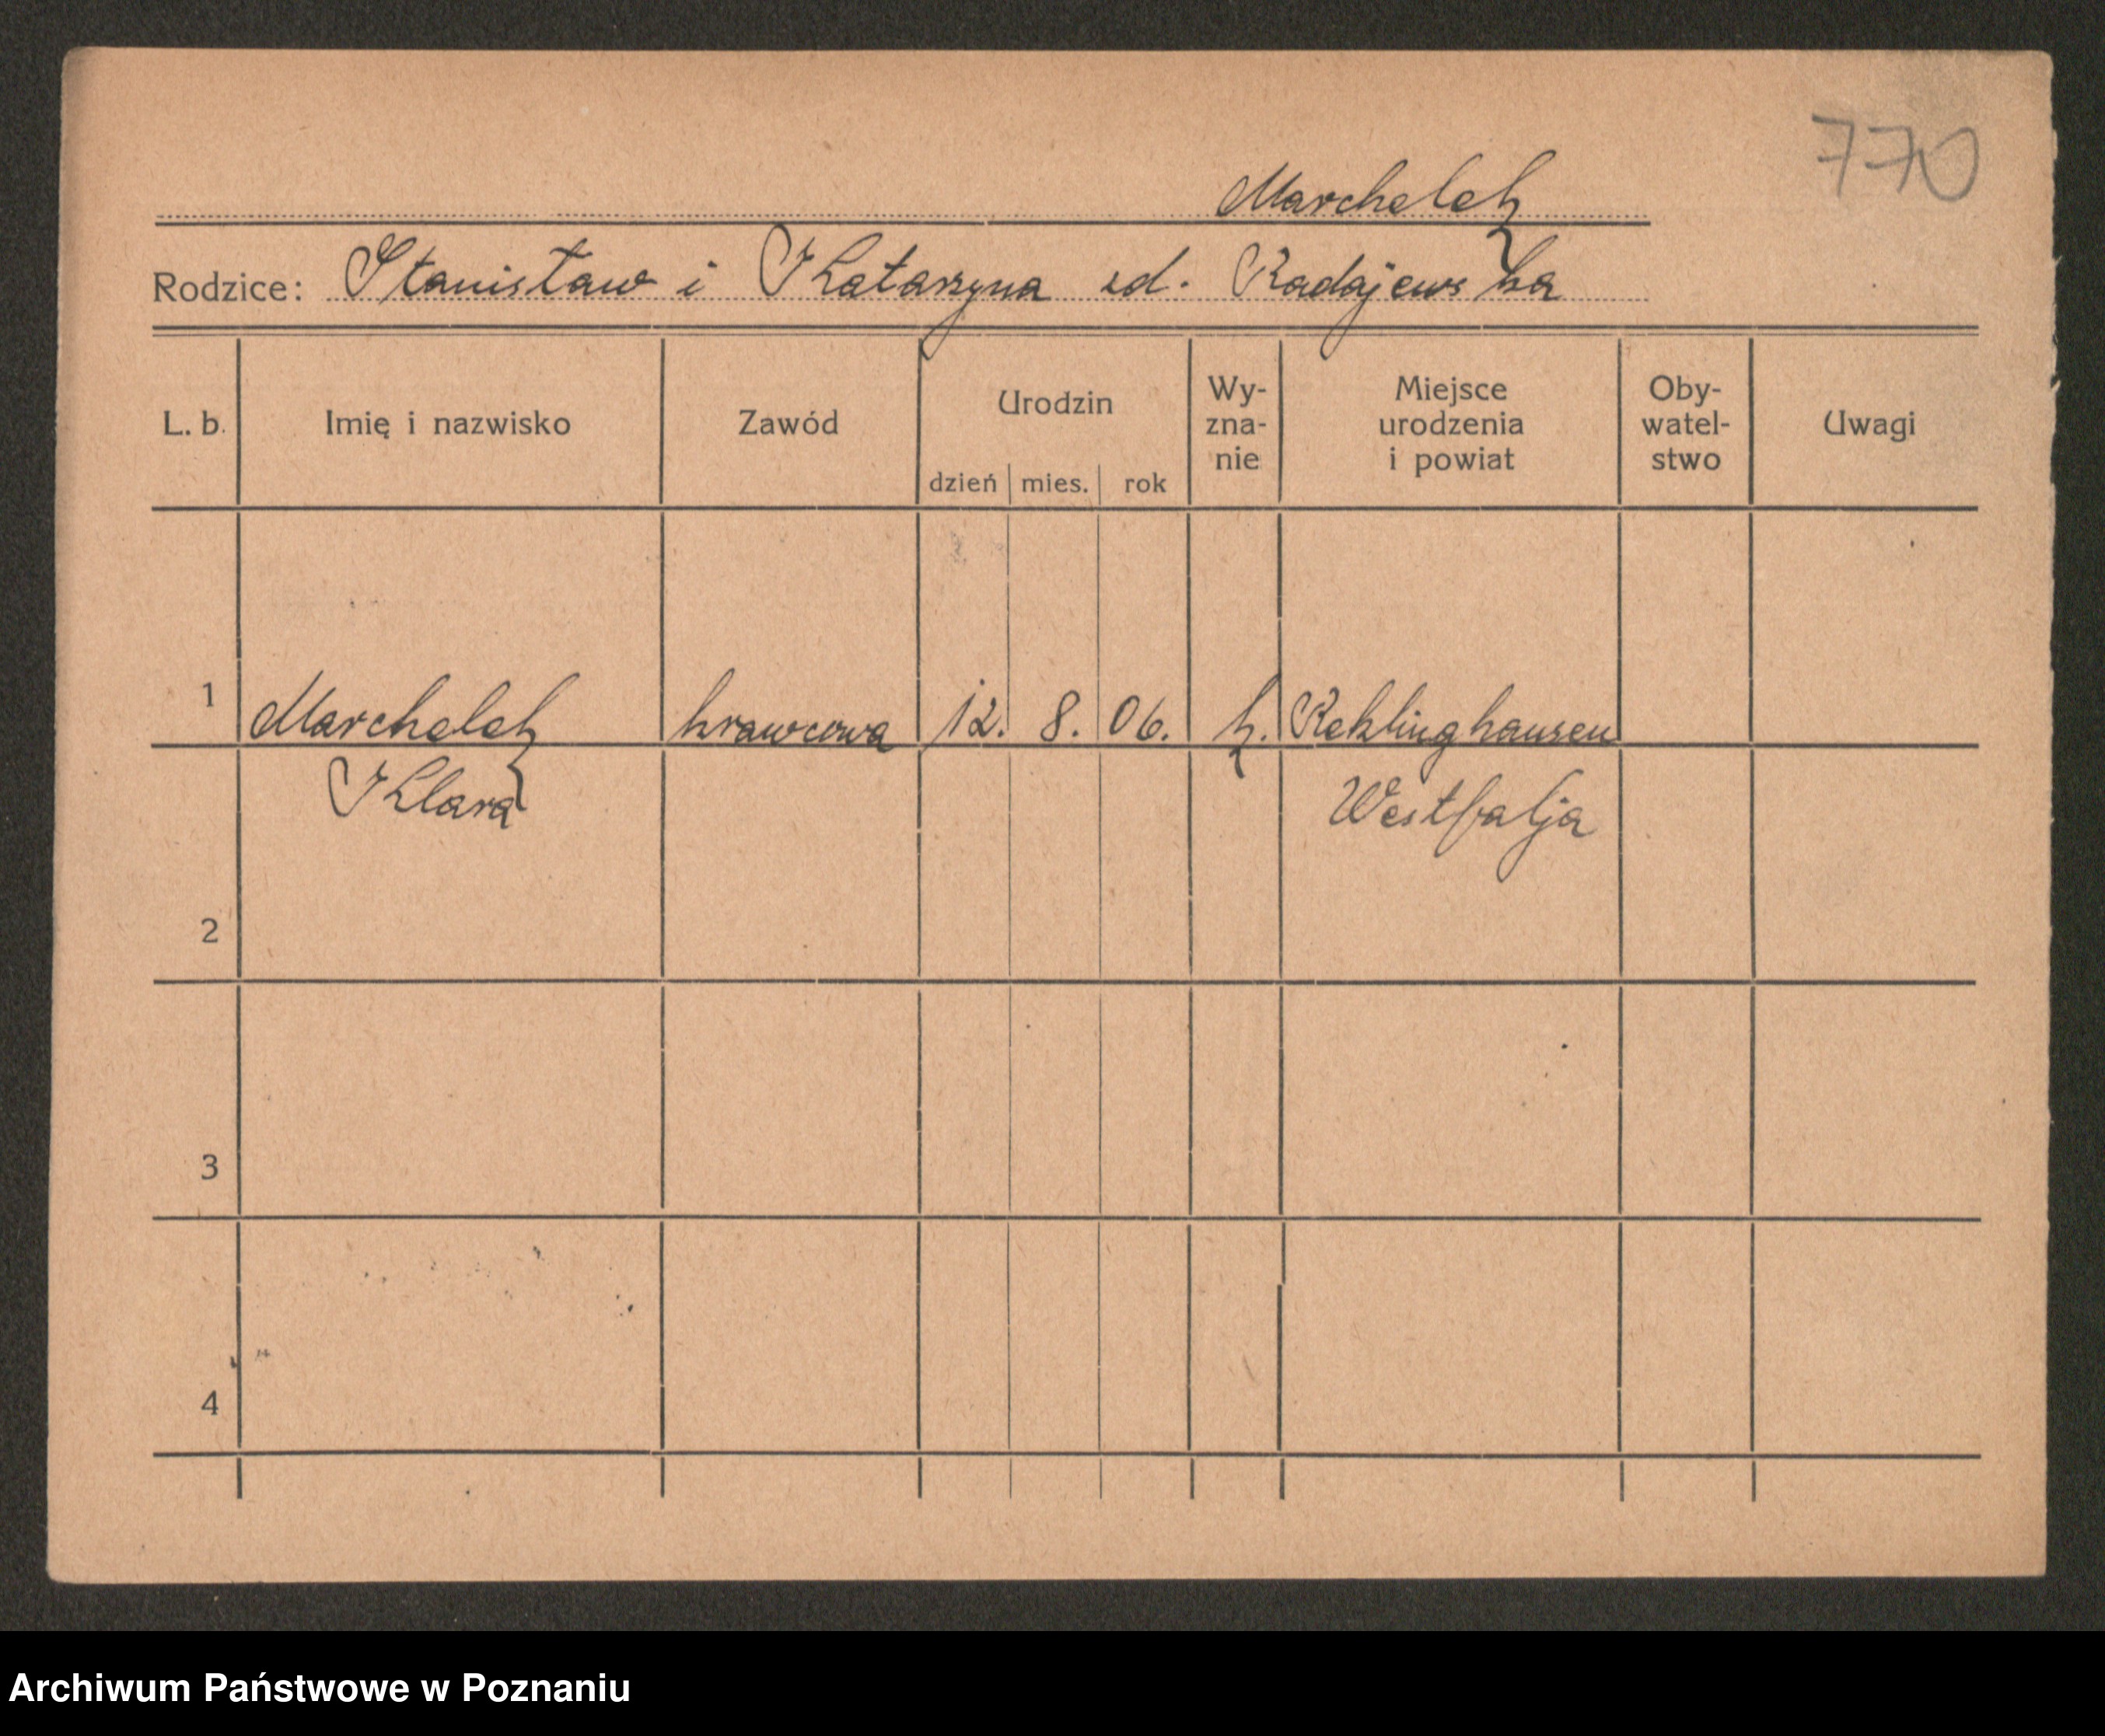 770
Marchelek
Rodzice: Stanisław i Katarzyna zd. Radajewska
L. b. Imię i nazwisko Zawód Urodzin dzień mies. rok Wy-zna-nie Miejsce urodzenia i powiat Oby-watel-stwo Uwagi
1 Marchelek krawcowa 12. 8. 06. k. Reklinghausen
Klara Westfalja
2
3
4
Archiwum Państwowe w Poznaniu